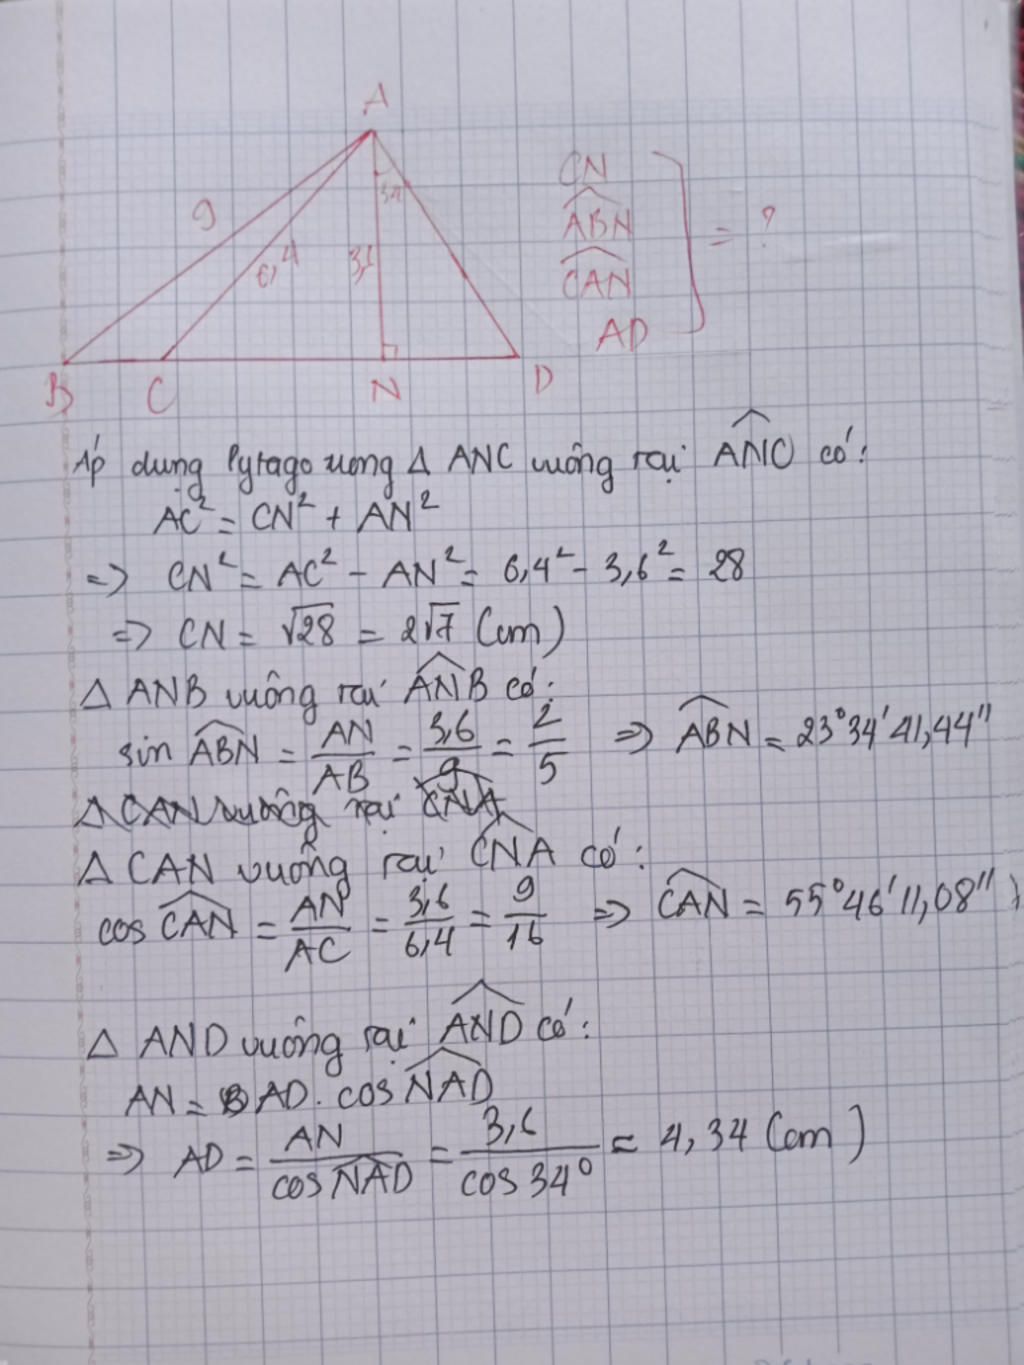 A
9
6,4
3,6
34
B
C
N
D
CN
ABN
CAN
AD
= ?
Áp dụng Pytago trong Δ ANC vuông tại ANC có:
AC² = CN² + AN²
=> CN² = AC² - AN² = 6,4² - 3,6² = 28
=> CN = √28 = 2√7 (cm)
Δ ANB vuông tại ANB có:
sin ABN = AN/AB = 3,6/9 = 2/5 => ABN = 23°34'41,44''
Δ CAN vuông tại CNA
Δ CAN vuông tại CNA có:
cos CAN = AN/AC = 3,6/6,4 = 9/16 => CAN = 55°46'11,08''
Δ AND vuông tại AND có:
AN = AD . cos NAD
=> AD = AN/cos NAD = 3,6/cos 34° = 4,34 (cm)